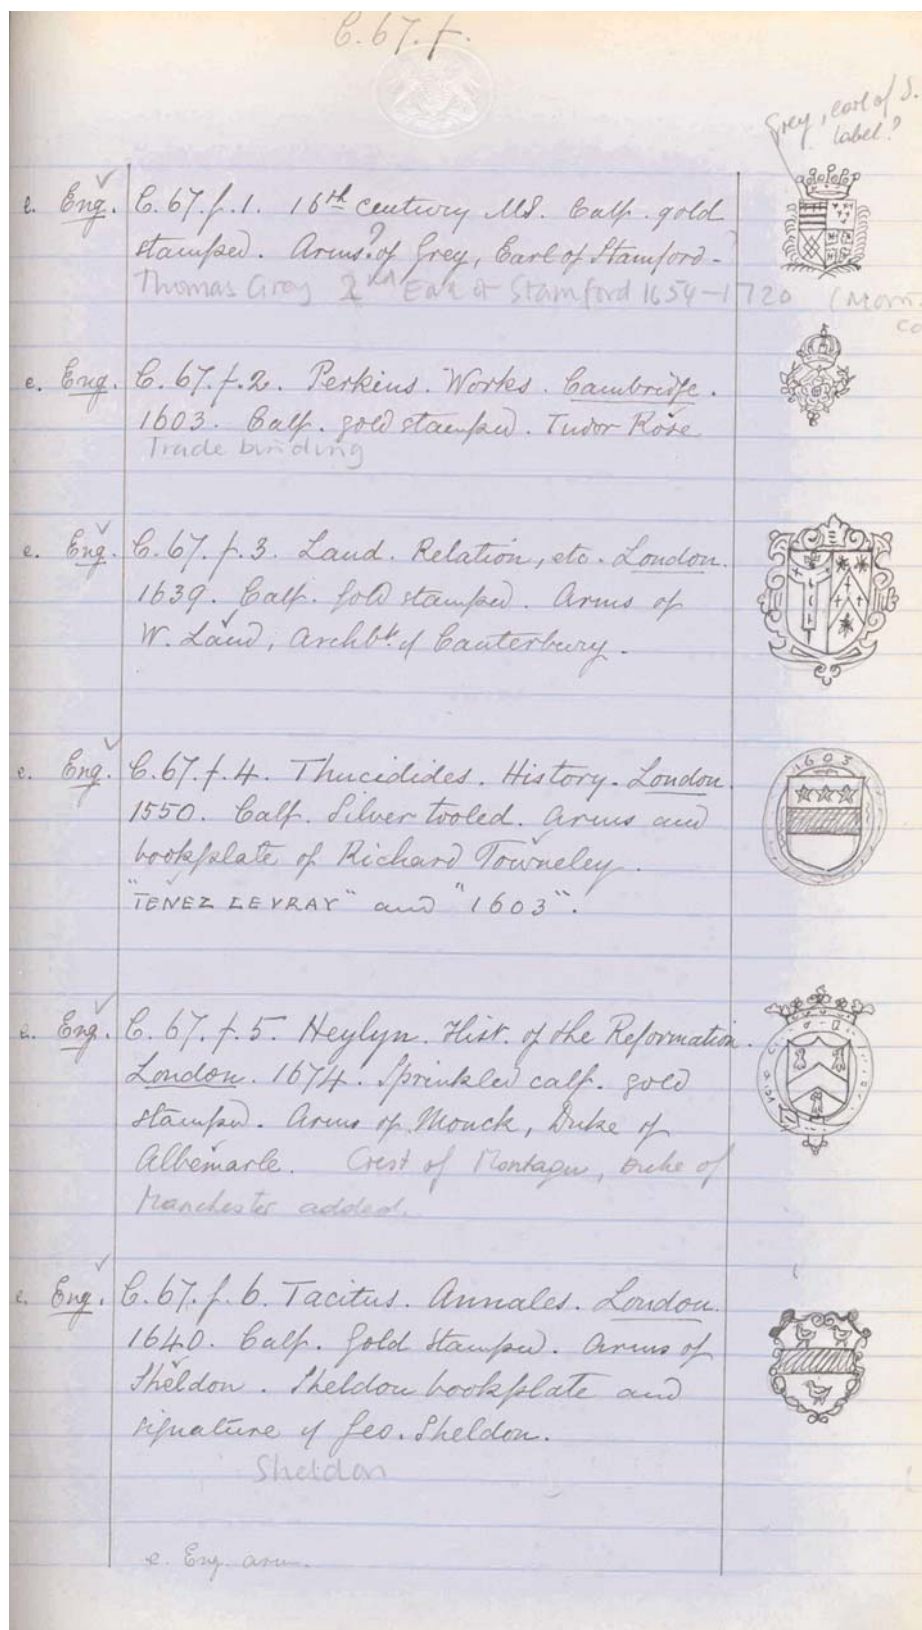 C.67.f.
Grey, earl of S.
label?
e. Eng. C.67.f.1. 16th century MS. Calf. gold
stamped. Arms? of Grey, Earl of Stamford -
Thomas Grey 2nd Earl of Stamford 1654-1720
e. Eng. C.67.f.2. Perkins. Works. Cambridge.
1603. Calf. gold stamped. Tudor Rose
Trade binding
e. Eng. C.67.f.3. Laud. Relation, etc. London.
1639. Calf. Gold stamped. Arms of
W. Laud, Archbp. of Canterbury.
e. Eng. C.67.f.4. Thucidides. History. London.
1603
1550. Calf. Silver tooled. Arms and
bookplate of Richard Towneley.
"TENEZ LEVRAY" and "1603".
e. Eng. C.67.f.5. Heylyn. Hist. of the Reformation.
London. 1674. Sprinkled calf. gold
stamped. Arms of Monck, Duke of
Albemarle. Crest of Montagu, Duke of
Manchester added.
e. Eng. C.67.f.6. Tacitus. Annales. London.
1640. Calf. Gold stamped. Arms of
Sheldon. Sheldon bookplate and
signature of Geo. Sheldon.
Sheldon
e. Eng. arm.